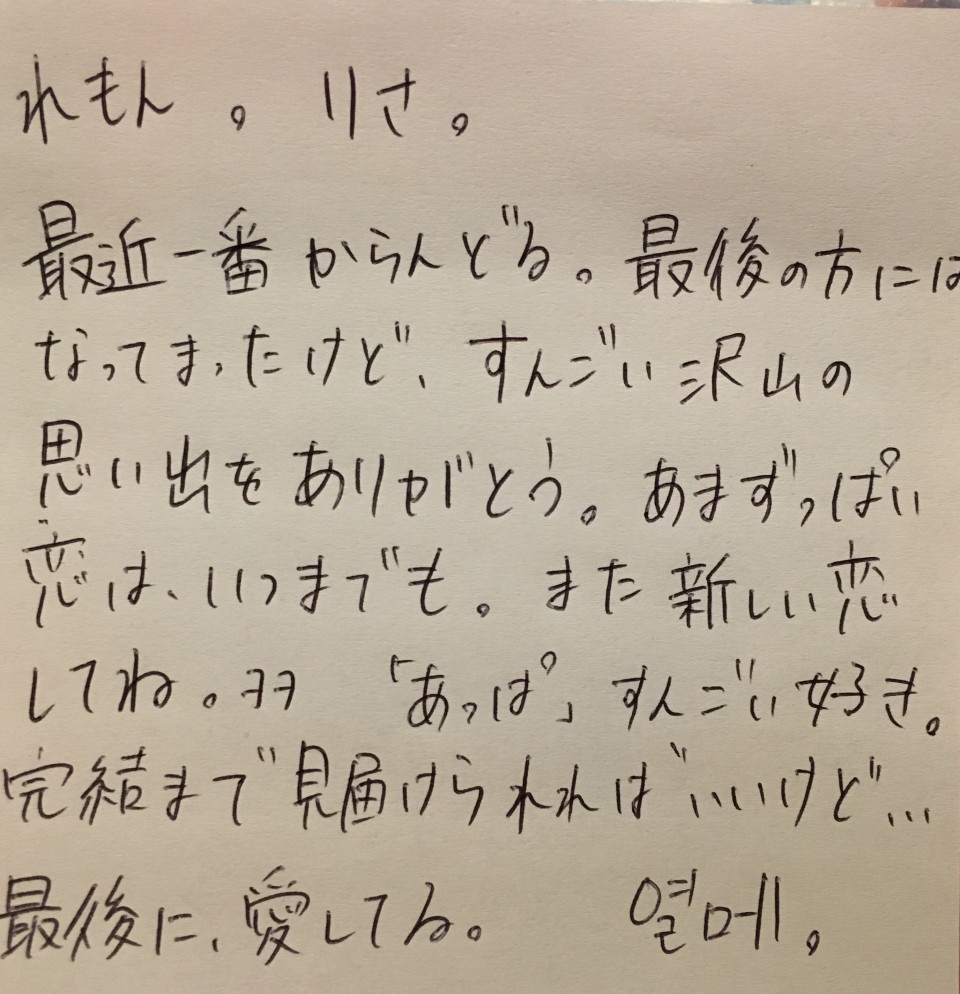 れもん。りさ。
最近一番からんどる。最後の方には
なってまったけど、すんごい沢山の
思い出をありがとう。あまずっぱい
恋は、いつまでも。また新しい恋
してね。ㅋㅋ「あっぱ」すんごい好き。
完結まで見届けられればいいけど…
最後に、愛してる。 열매。